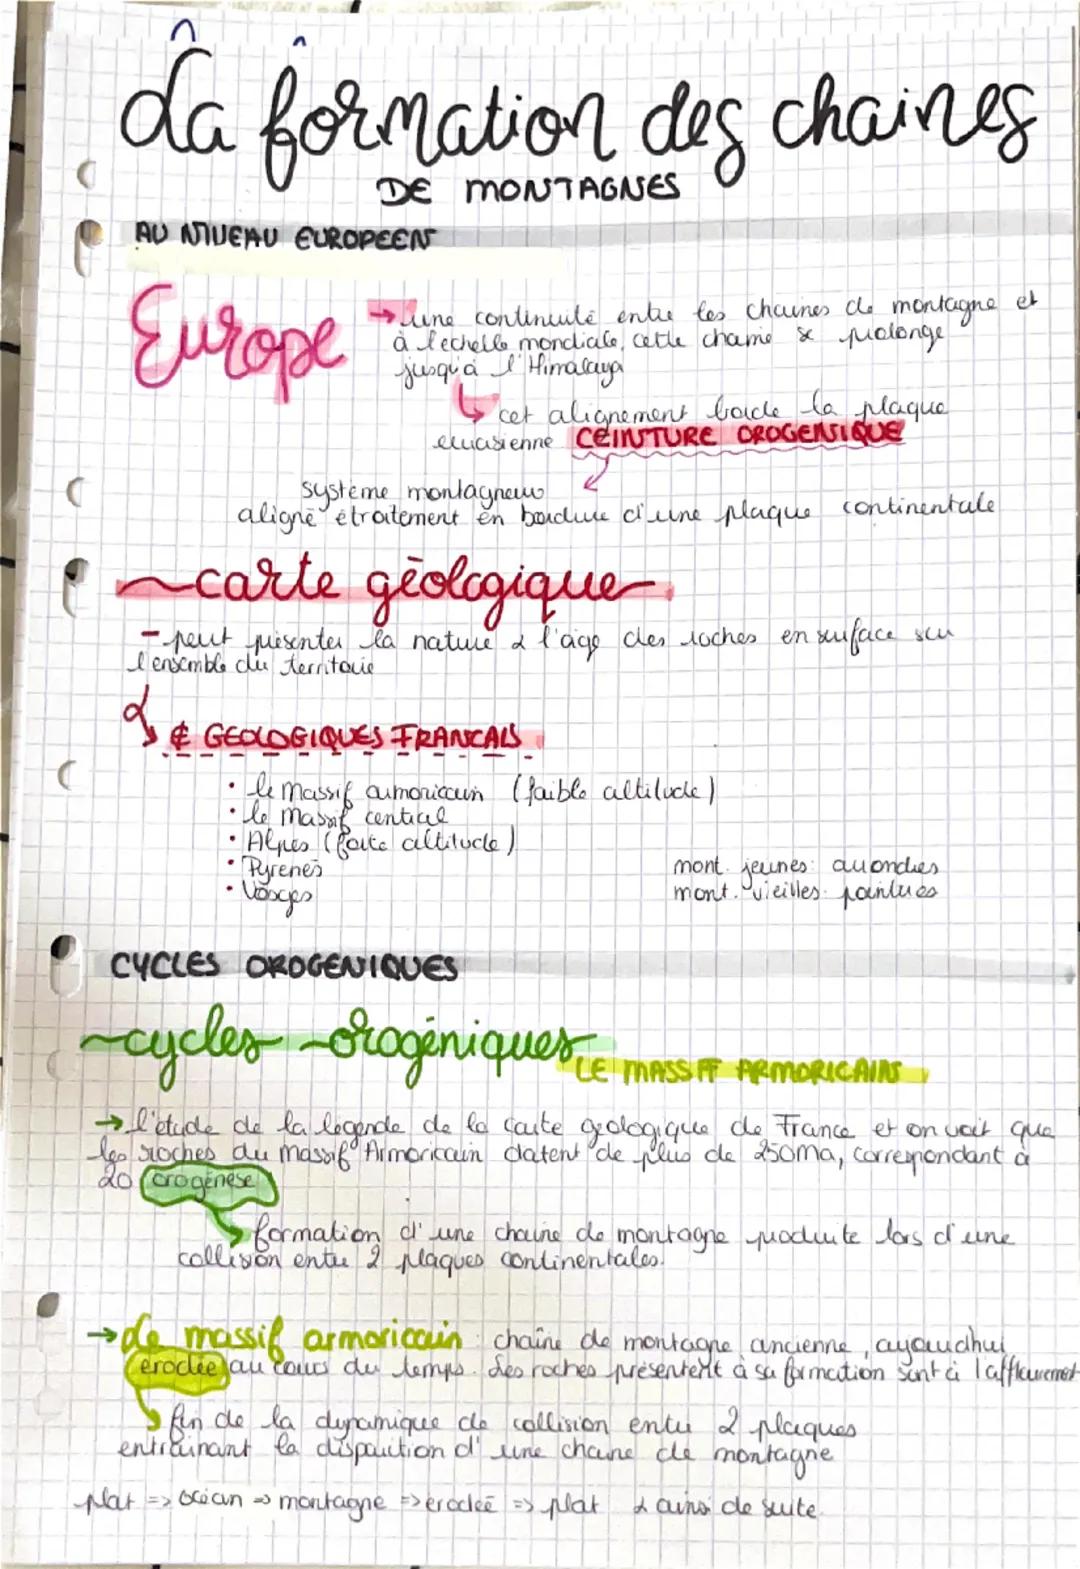 La formation des chaines
DE MONTAGNES
AU NIVEAU EUROPEEN
Europe
→ une continuité entre les chaines de montagne et
à l'echelle mondiale, cette chaine se prolonge
jusqu'à l'Himalaya
cet alignement borde la plaque
eurasienne CEINTURE OROGENIQUE
système montagneux
aligné étroitement en bordure d'une plaque continentale
carte géologique
- peut présenter la nature & l'âge des roches en surface sur
l'ensemble du territoire
GEOLOGIQUES FRANCAIS
• le massif armoricain (faible altitude)
• le massif central
• Alpes (forte altitude)
• Pyrenés
• Vosges
mont. jeunes: arrondies
mont. vieilles: pointues
CYCLES OROGENIQUES
cycles orogéniques
LE MASSIF ARMORICAIN
→ l'étude de la légende de la carte géologique de France et on voit que
les roches du massif Armoricain datent de plus de 250ma, correspondant à
20 orogenèse
formation d'une chaine de montagne produite lors d'une
collision entre 2 plaques continentales.
→ Le massif armoricain : chaîne de montagne ancienne, ajourdhui
erodée au cours du temps. Les roches présentent à sa formation sont à l'affleurement
fin de la dynamique de collision entre 2 plaques
entrainant la disparition d'une chaine de montagne
plat => océan => montagne => erodée => plat & ainsi de suite.